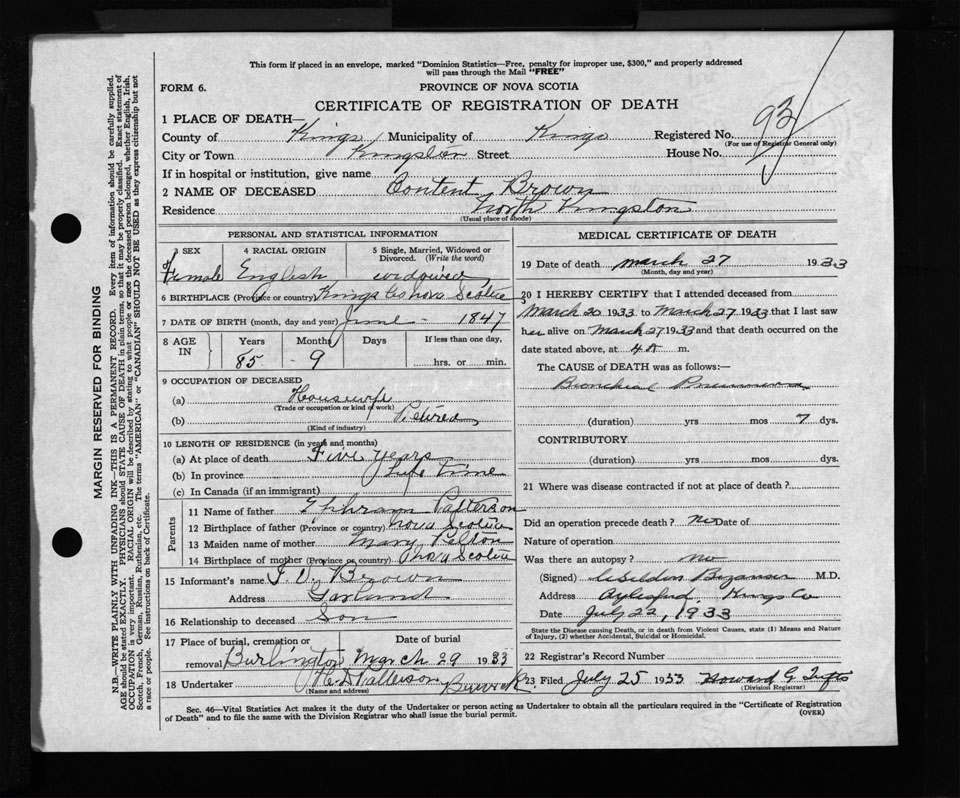 This form if placed in an envelope, marked "Dominion Statistics—Free, penalty for improper use, $300," and properly addressed
will pass through the Mail "FREE"
FORM 6.
PROVINCE OF NOVA SCOTIA
CERTIFICATE OF REGISTRATION OF DEATH
93
1 PLACE OF DEATH—
County of Kings Municipality of Kings Registered No.
(For use of Registrar General only)
City or Town Kingston Street House No.
If in hospital or institution, give name
2 NAME OF DECEASED Content Brown
Residence North Kingston
(Usual place of abode)
PERSONAL AND STATISTICAL INFORMATION
3 SEX 4 RACIAL ORIGIN 5 Single, Married, Widowed or Divorced. (Write the word)
Female English widowed
6 BIRTHPLACE (Province or country) Kings Co Nova Scotia
7 DATE OF BIRTH (month, day and year) June - 1847
8 AGE IN Years Months Days If less than one day,
85 - 9 hrs. or min.
9 OCCUPATION OF DECEASED
(a) Housewife
(Trade or occupation or kind of work)
(b) Retired
(Kind of industry)
10 LENGTH OF RESIDENCE (in years and months)
(a) At place of death Five years
(b) In province Life Time
(c) In Canada (if an immigrant)
Parents
11 Name of father Ephram Patterson
12 Birthplace of father (Province or country) Nova Scotia
13 Maiden name of mother Mary Pelton
14 Birthplace of mother (Province or country) Nova Scotia
15 Informant's name Brown
Address Garland
16 Relationship to deceased Son
17 Place of burial, cremation or removal Date of burial
Burlington March 29 1933
18 Undertaker Patterson Berwick
(Name and address)
MEDICAL CERTIFICATE OF DEATH
19 Date of death March 27 1933
(Month, day and year)
20 I HEREBY CERTIFY that I attended deceased from
March 20 1933 to March 27 1933 that I last saw
her alive on March 27 1933 and that death occurred on the
date stated above, at 4 a m.
The CAUSE OF DEATH was as follows:—
Bronchial Pneumonia
(duration) yrs mos 7 dys.
CONTRIBUTORY
(duration) yrs mos dys.
21 Where was disease contracted if not at place of death?
Did an operation precede death? No Date of
Nature of operation
Was there an autopsy? no
(Signed) M.D.
Address Aylesford Kings Co
Date July 22, 1933
State the Disease causing Death, or in death from Violent Causes, state (1) Means and Nature
of Injury, (2) whether Accidental, Suicidal or Homicidal.
22 Registrar's Record Number
23 Filed July 25 1933 Howard G. Tufts
(Division Registrar)
Sec. 46—Vital Statistics Act makes it the duty of the Undertaker or person acting as Undertaker to obtain all the particulars required in the "Certificate of Registration
of Death" and to file the same with the Division Registrar who shall issue the burial permit.
(OVER)
MARGIN RESERVED FOR BINDING
N.B.—WRITE PLAINLY WITH UNFADING INK—THIS IS A PERMANENT RECORD. Every item of information should be carefully supplied.
AGE should be stated EXACTLY. PHYSICIANS should STATE CAUSE OF DEATH in plain terms, so that it may be properly classified. Exact statement of
OCCUPATION is very important. RACIAL ORIGIN will be described by stating to what people or race the deceased person belonged, whether English, Irish,
Scotch, French, German, Russian, Ruthenian, etc. The terms "AMERICAN" or "CANADIAN" SHOULD NOT BE USED as they express citizenship but not
a race or people. See instructions on back of Certificate.